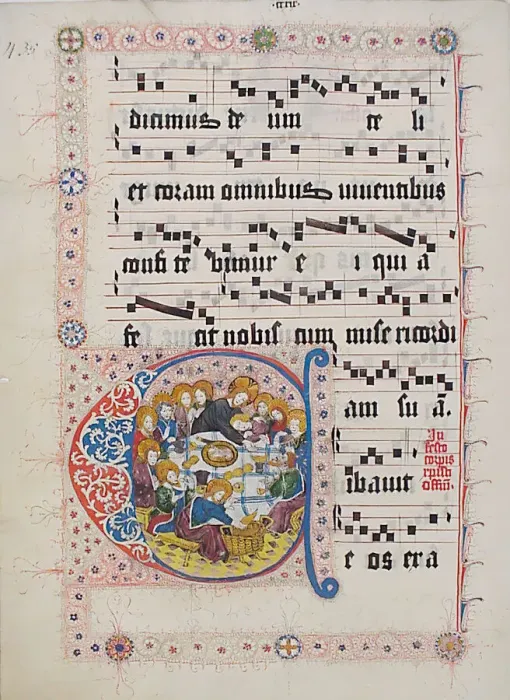 ·cxix·
435
dicimus de um ce li
et coram omnibus uiuentibus
confi te bimur e i qui a
fe cit nobis cum mise ricordi
am su ā.
In
festo
corpis
cristi
offm̄.
ibauit
e os exa